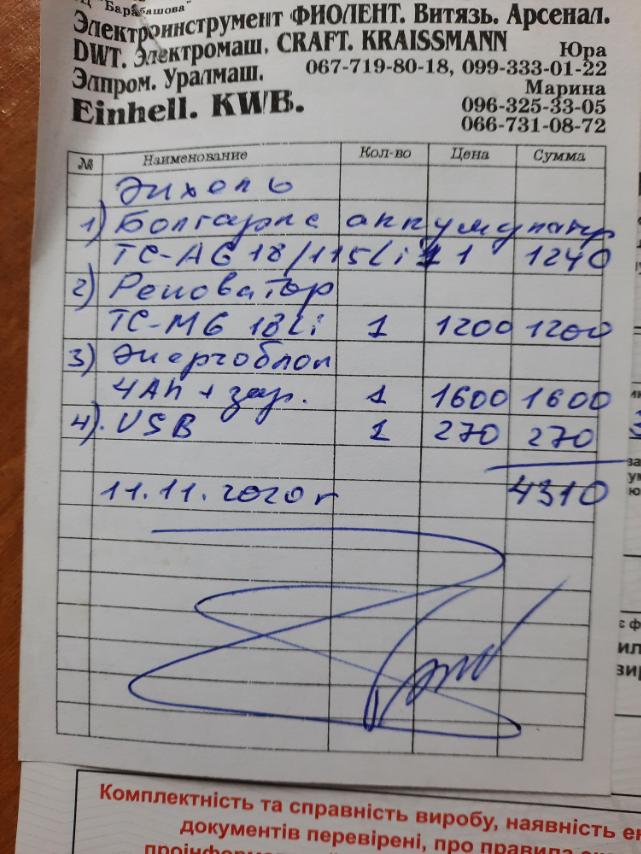 "Барабашова"
Электроинструмент ФИОЛЕНТ. Витязь. Арсенал.
DWT. Электромаш. CRAFT. KRAISSMANN
Юра
Элпром. Уралмаш.
067-719-80-18, 099-333-01-22
Марина
Einhell. KWB.
096-325-33-05
066-731-08-72
№ Наименование Кол-во Цена Сумма
Энхель
1) Болгарка аккумулятор
TC-AG 18/115Li 1 1240
2) Реноватор
TC-MG 18Li 1 1200 1200
3) Энергоблок
4Ah + зар. 1 1600 1600
4). USB 1 270 270
11.11.2020г 4310
Комплектність та справність виробу, наявність
документів перевірені, про правила